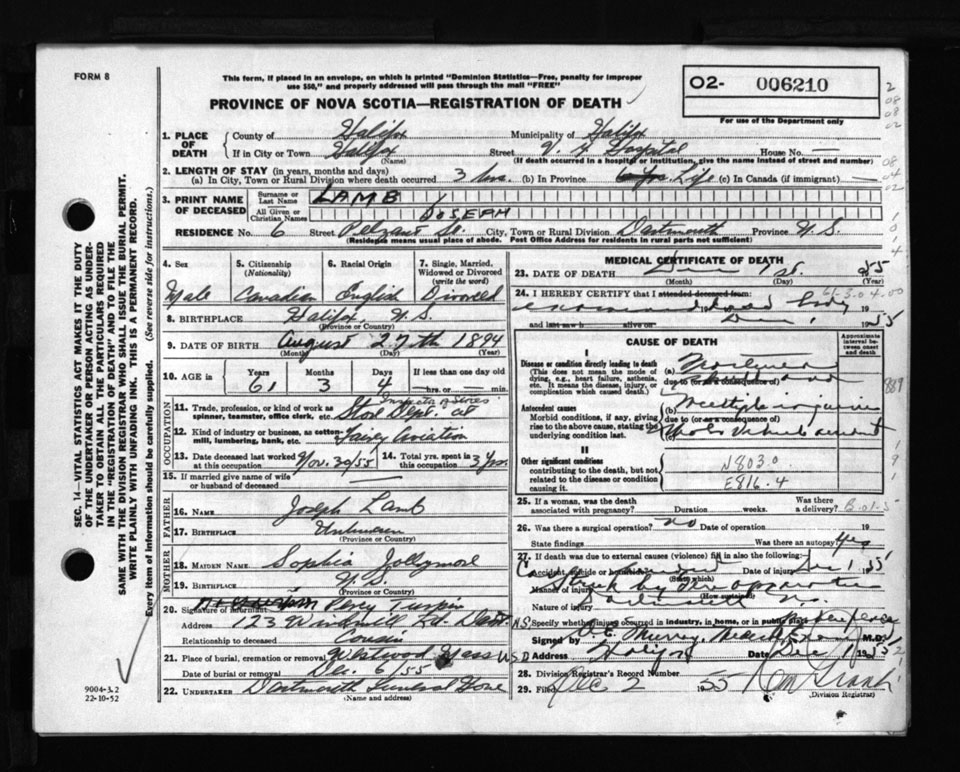 FORM 8
This form, if placed in an envelope, on which is printed "Dominion Statistics—Free, penalty for improper
use $50," and properly addressed will pass through the mail "FREE"
PROVINCE OF NOVA SCOTIA—REGISTRATION OF DEATH
O2- 006210
For use of the Department only
SEC. 14—VITAL STATISTICS ACT MAKES IT THE DUTY
OF THE UNDERTAKER OR PERSON ACTING AS UNDER-
TAKER TO OBTAIN ALL THE PARTICULARS REQUIRED
IN THE "REGISTRATION OF DEATH" AND TO FILE THE
SAME WITH THE DIVISION REGISTRAR WHO SHALL ISSUE THE BURIAL PERMIT.
WRITE PLAINLY WITH UNFADING INK. THIS IS A PERMANENT RECORD.
Every item of information should be carefully supplied. (See reverse side for instructions.)
9004-3.2
22-10-52
1. PLACE OF DEATH
County of Halifax Municipality of Halifax
If in City or Town Halifax Street V. G. Hospital House No. —
(Name) (If death occurred in a hospital or institution, give the name instead of street and number)
2. LENGTH OF STAY (in years, months and days)
(a) In City, Town or Rural Division where death occurred 3 hrs. (b) In Province Life (c) In Canada (if immigrant) —
3. PRINT NAME OF DECEASED
Surname or Last Name LAMB
All Given or Christian Names JOSEPH
RESIDENCE No. 6 Street Pelzant St. City, Town or Rural Division Dartmouth Province N.S.
(Residence means usual place of abode. Post Office Address for residents in rural parts not sufficient)
4. Sex Male
5. Citizenship (Nationality) Canadian
6. Racial Origin English
7. Single, Married, Widowed or Divorced (write the word) Divorced
8. BIRTHPLACE Halifax, N.S.
(Province or Country)
9. DATE OF BIRTH August 27th 1894
(Month) (Day) (Year)
10. AGE in Years 61 Months 3 Days 4 If less than one day
hrs. or — min.
OCCUPATION
11. Trade, profession, or kind of work as spinner, teamster, office clerk, etc. Inspector of Stores
Store Dept. at
12. Kind of industry or business, as cotton-mill, lumbering, bank, etc. Fairey Aviation
13. Date deceased last worked at this occupation Nov. 30/55
14. Total yrs. spent in this occupation 3 yrs.
15. If married give name of wife or husband of deceased —
FATHER
16. NAME Joseph Lamb
17. BIRTHPLACE Unknown
(Province or Country)
MOTHER
18. MAIDEN NAME Sophia Jollymore
19. BIRTHPLACE N.S.
(Province or Country)
20. Signature of informant Percy Turpin
Address 123 Windmill Rd. Dart.
Relationship to deceased Cousin
21. Place of burial, cremation or removal Westwood Mass U.S.
Date of burial or removal Dec. 6/55
22. UNDERTAKER Dartmouth Funeral Home
(Name and address)
MEDICAL CERTIFICATE OF DEATH
23. DATE OF DEATH Dec 1st. 1955
(Month) (Day)
24. I HEREBY CERTIFY that I attended deceased from:
body 19
and last saw alive on Dec 1 1955
CAUSE OF DEATH
Approximate interval between onset and death
I
Disease or condition directly leading to death
(This does not mean the mode of dying, e.g., heart failure, asthenia, etc. It means the disease, injury, or complication which caused death.
(a)
due to (or as a consequence of)
Antecedent causes
Morbid conditions, if any, giving rise to the above cause, stating the underlying condition last.
(b) Multiple injuries
due to (or as a consequence of)
Motor Vehicle accident
II
Other significant conditions
contributing to the death, but not related to the disease or condition causing it.
N803.0
E816.4
25. If a woman, was the death associated with pregnancy? Duration weeks. Was there a delivery?
26. Was there a surgical operation? no Date of operation 19
State findings Was there an autopsy? yes
27. If death was due to external causes (violence) fill in also the following:
Accident, suicide or homicide? Accident Date of injury Dec 1 1955
(State which)
Manner of injury Struck by fire apparatus
(How sustained)
Nature of injury
Specify whether injury occurred in industry, in home, or in public place
Signed by Murray M.D.
Address Halifax Date Dec 1 1955
28. Division Registrar's Record Number
29. Filed Dec 2 1955
(Division Registrar)